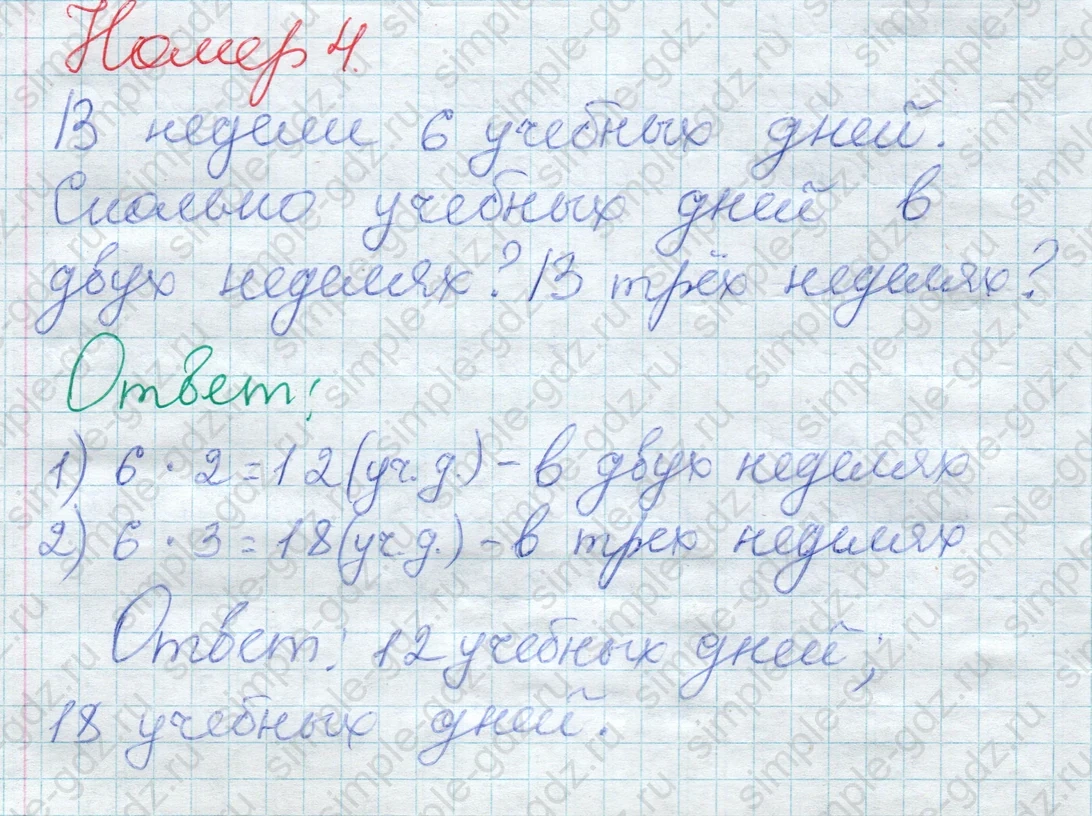 Номер 4.
В неделе 6 учебных дней.
Сколько учебных дней в
двух неделях? В трёх неделях?
Ответ:
1) 6 · 2 = 12 (уч.д.) - в двух неделях
2) 6 · 3 = 18 (уч.д.) - в трех неделях
Ответ: 12 учебных дней;
18 учебных дней.
simple-gdz.ru